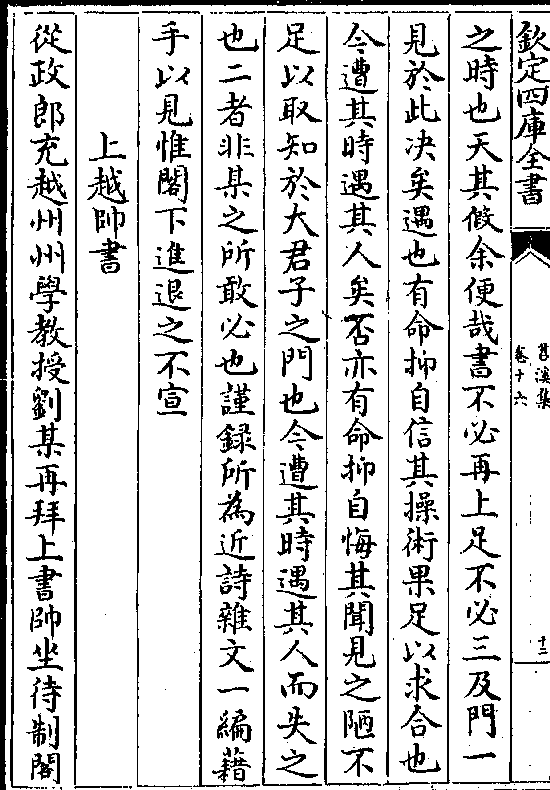 欽定四庫全書
苕溪集
卷十六
十二
之時也天其假余便哉書不必再上足不必三及門一
見於此决矣遇也有命抑自信其操術果足以求合也
今遭其時遇其人矣否亦有命抑自悔其聞見之陋不
足以取知於大君子之門也今遭其時遇其人而失之
也二者非某之所敢必也謹録所為近詩雜文一編藉
手以見惟閣下進退之不宣
上越帥書
從政郎充越州州學教授劉某再拜上書帥坐待制閣